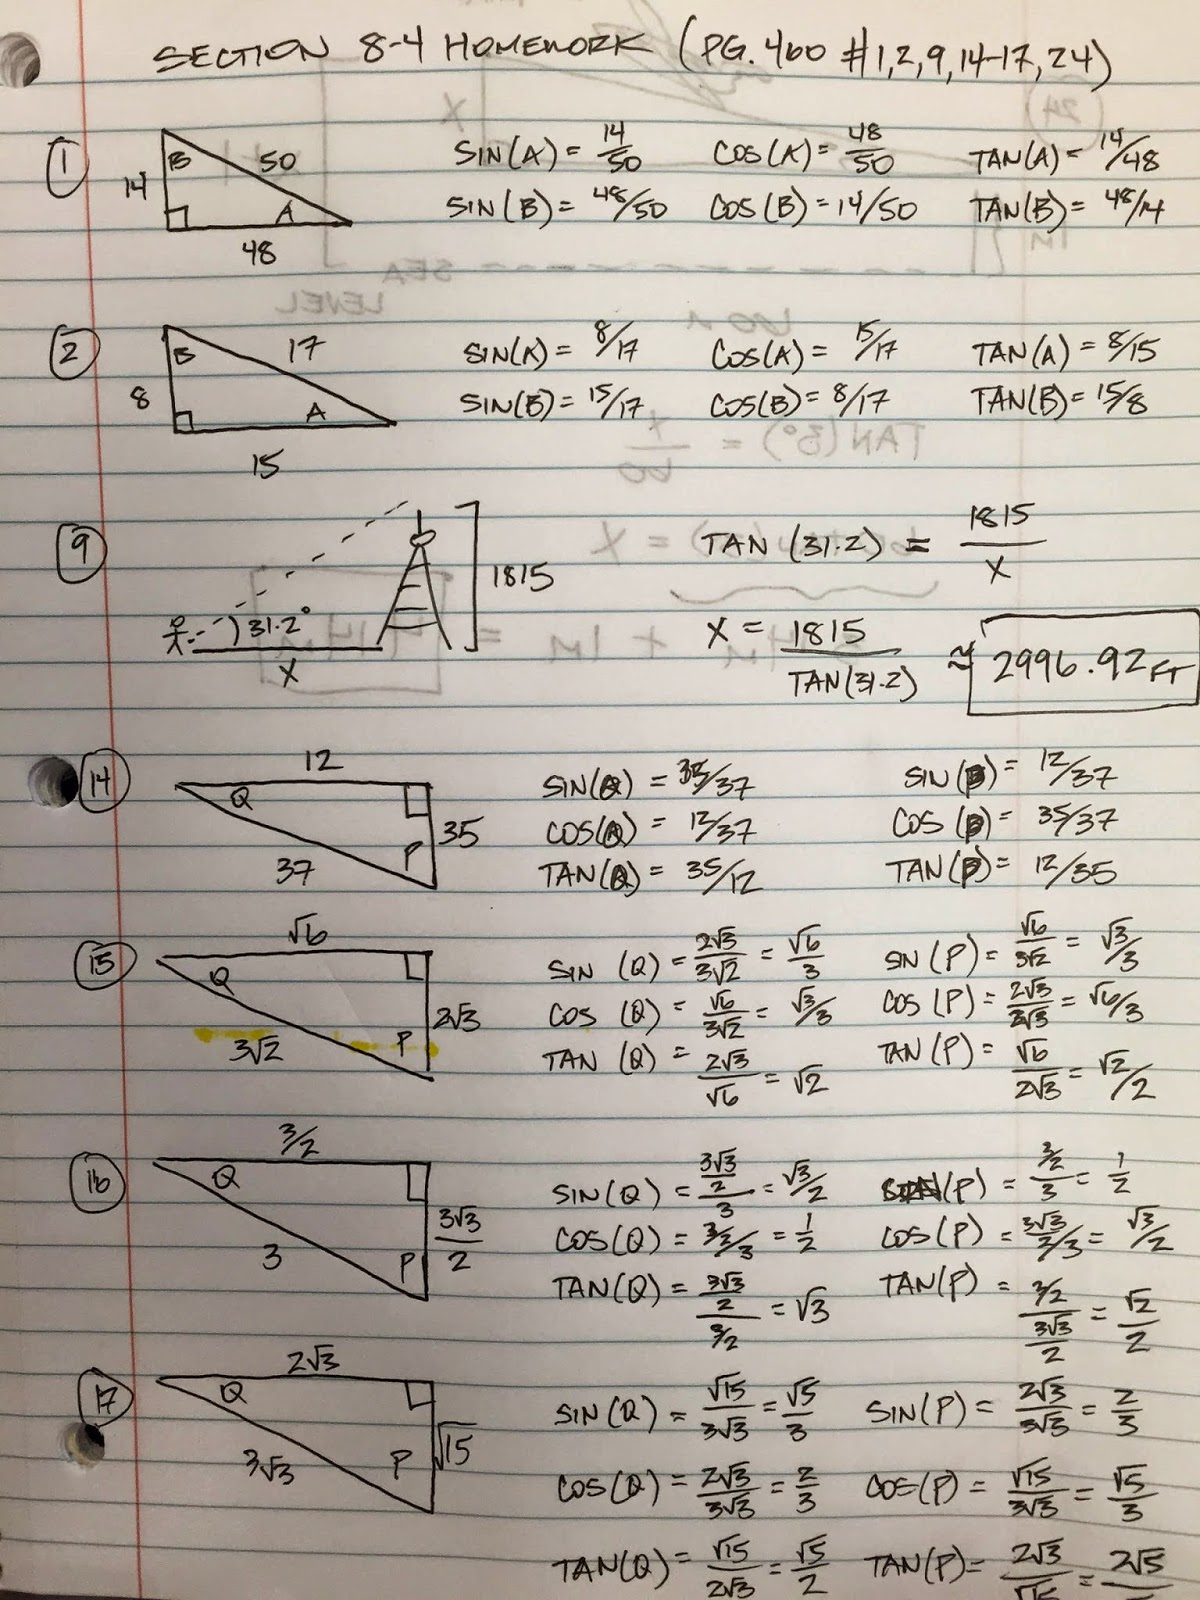 SECTION 8-4 HOMEWORK (PG. 460 #1,2,9,14-17,24)
1
B 50
14
A
48
SIN(A) = 14/50 COS(A) = 48/50 TAN(A) = 14/48
SIN(B) = 48/50 COS(B) = 14/50 TAN(B) = 48/14
2
B 17
8
A
15
SIN(A) = 8/17 COS(A) = 15/17 TAN(A) = 8/15
SIN(B) = 15/17 COS(B) = 8/17 TAN(B) = 15/8
9
1815
31.2°
X
TAN (31.2) = 1815/X
X = 1815/TAN(31.2) ≈ 2996.92 FT
14
12
Q
35
P
37
SIN(Q) = 35/37 SIN(P) = 12/37
COS(Q) = 12/37 COS(P) = 35/37
TAN(Q) = 35/12 TAN(P) = 12/35
15
√6
Q
2√3
P
3√2
SIN (Q) = 2√3/3√2 = √6/3 SIN (P) = √6/3√2 = √3/3
COS (Q) = √6/3√2 = √3/3 COS (P) = 2√3/ = √6/3
TAN (Q) = 2√3/√6 = √2 TAN (P) = √6/2√3 = √2/2
16
3/2
Q
3√3/2
3
P
SIN(Q) = 3√3/2/3 = √3/2 (P) = 3/2/3 = 1/2
COS(Q) = 3/2/3 = 1/2 COS(P) = 3√3/2/3 = √3/2
TAN(Q) = 3√3/2/3/2 = √3 TAN(P) = 3/2/3√3/2 = √2/2
17
2√3
Q
√15
P
3√3
SIN(Q) = √15/3√3 = √5/3 SIN(P) = 2√3/3√3 = 2/3
COS(Q) = 2√3/3√3 = 2/3 COS(P) = √15/3√3 = √5/3
TAN(Q) = √15/2√3 = √5/2 TAN(P) = 2√3/√15 = 2√5
24
X
1M
SEA
LEVEL
60
TAN(3°) = X/60
= X
+ 1M =